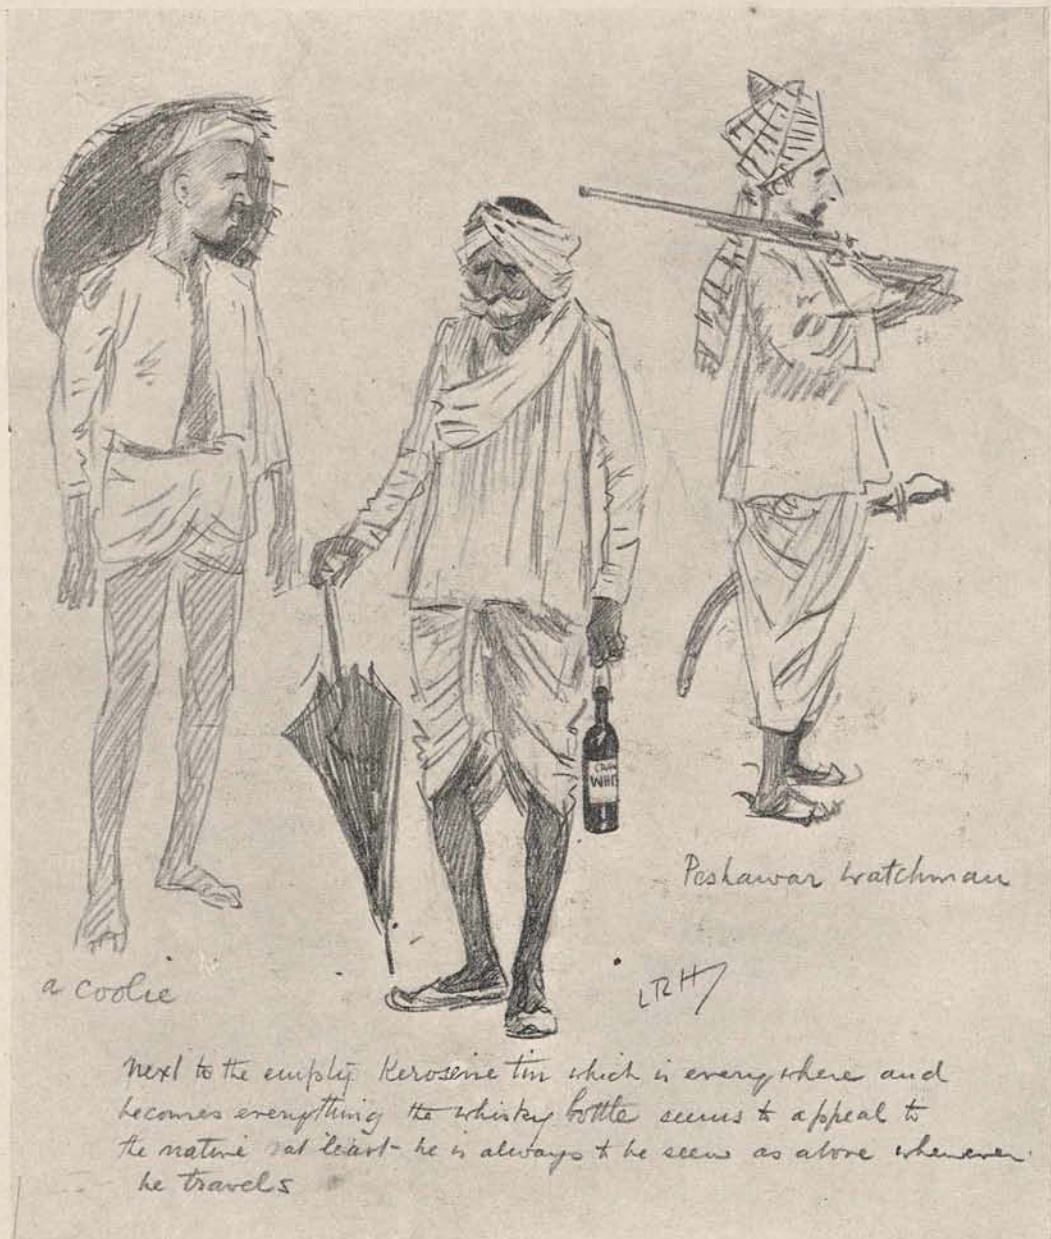 WHI
Peshawar watchman
a coolie
LRH
Next to the empty Kerosene tin which is everywhere and
becomes everything the whisky bottle seems to appeal to
the native at least - he is always to be seen as above whenever
he travels